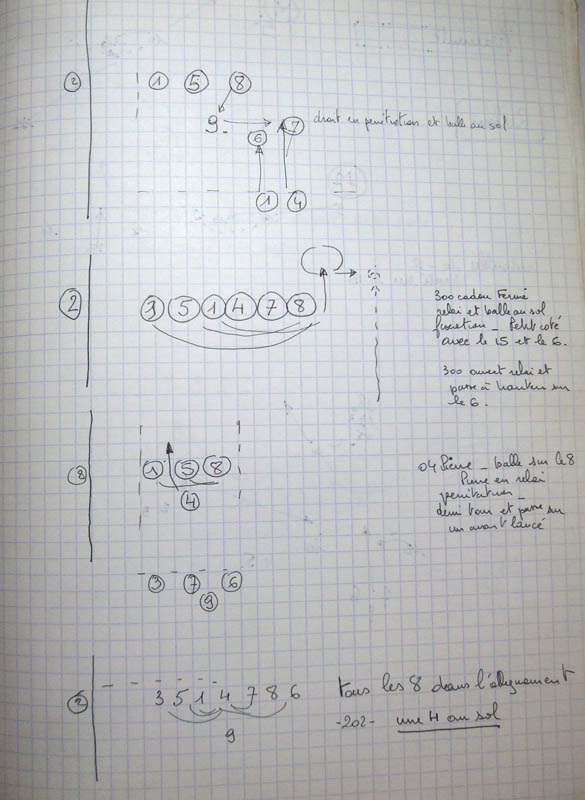 2
1 5 8
9
6 7
droit en pénétration et balle au sol
1 4
2
3 5 1 4 7 8
300 cadou Fermé
relai et balle au sol
fixation - Petit coté
avec le 15 et le 6.
300 ouvert relai et
passe à hauteur sur
le 6.
8
1 5 8
4
04 Pierre - balle sur le 8
Pierre en relai
pénétration -
demi tour et passe sur
un avant lancé
3 7 6
9
2
3 5 1 4 7 8 6
9
tous les 8 dans l'alignement
-202- une 4 au sol